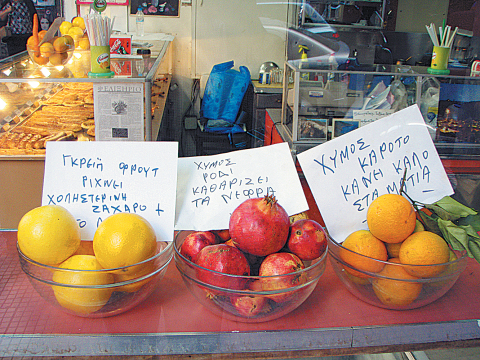 ΓΚΡΕΙΠ ΦΡΟΥΤ
ΡΙΧΝΕΙ
ΧΟΛΗΣΤΕΡΙΝΗ
ΖΑΧΑΡΟ +
ΧΥΜΟΣ
ΡΟΔΙ
ΚΑΘΑΡΙΖΕΙ
ΤΑ ΝΕΦΡΑ
ΧΥΜΟΣ
ΚΑΡΟΤΟ
ΚΑΝΕΙ ΚΑΛΟ
ΣΤΑ ΜΑΤΙΑ